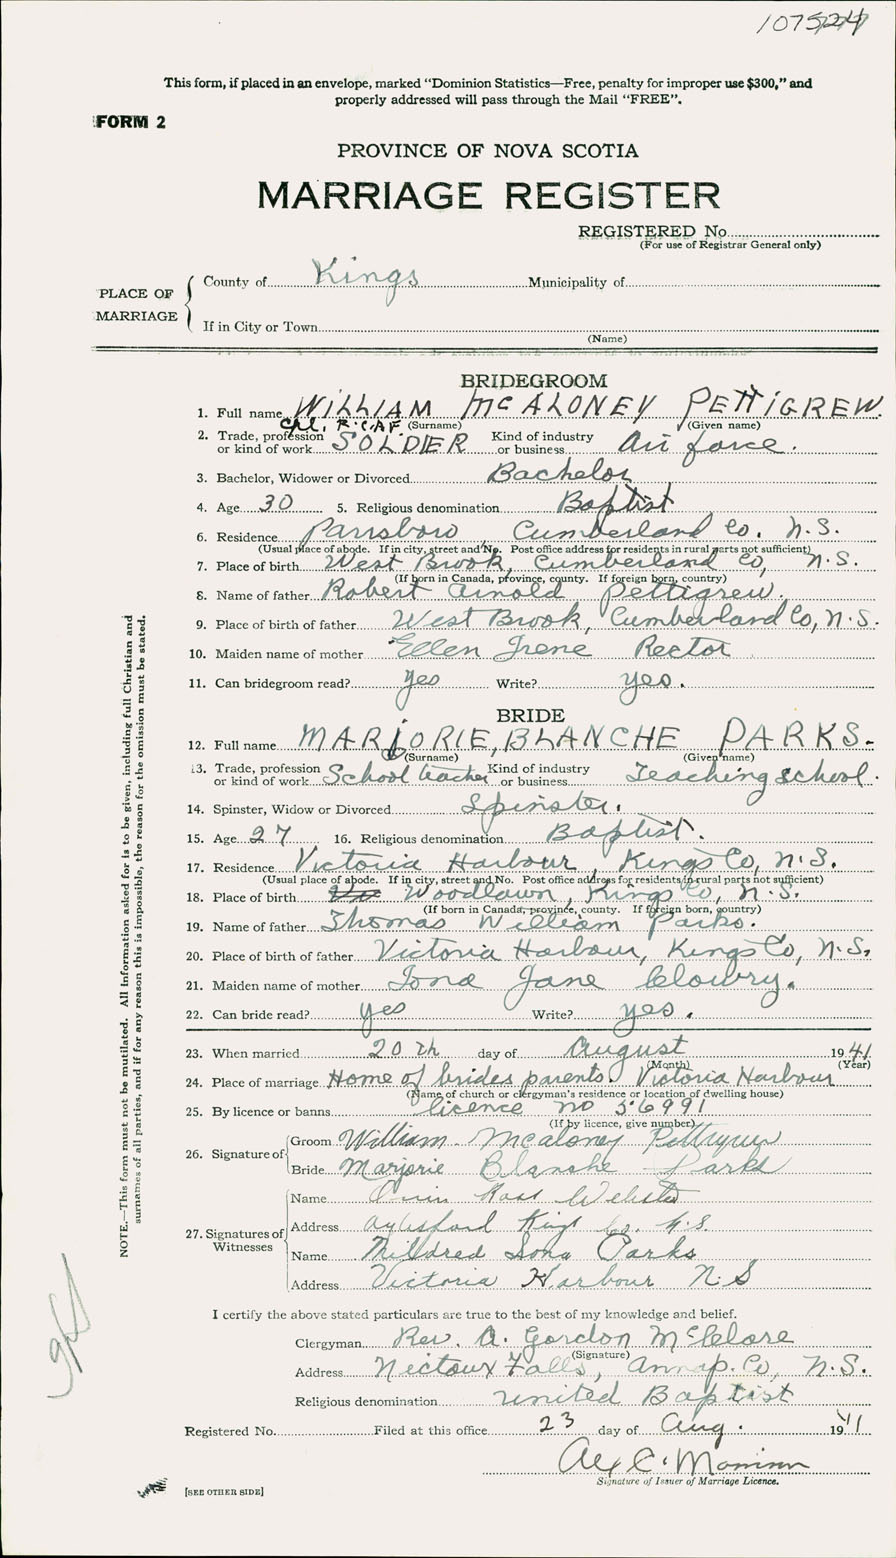 This form, if placed in an envelope, marked “Dominion Statistics—Free, penalty for improper use $300,” and
properly addressed will pass through the Mail “FREE”.
FORM 2
PROVINCE OF NOVA SCOTIA
MARRIAGE REGISTER
REGISTERED No.
(For use of Registrar General only)
PLACE OF MARRIAGE
County of Kings Municipality of
If in City or Town
(Name)
BRIDEGROOM
1. Full name WILLIAM McALONEY PETTIGREW
(Surname) (Given name)
R.C.A.F.
2. Trade, profession or kind of work SOLDIER Kind of industry or business Air force.
3. Bachelor, Widower or Divorced Bachelor
4. Age 30 5. Religious denomination Baptist
6. Residence Parrsboro Cumberland Co. N.S.
(Usual place of abode. If in city, street and No. Post office address for residents in rural parts not sufficient)
7. Place of birth West Brook, Cumberland Co, N.S.
(If born in Canada, province, county. If foreign born, country)
8. Name of father Robert Arnold Pettigrew.
9. Place of birth of father West Brook, Cumberland Co, N.S.
10. Maiden name of mother Ellen Irene Rector
11. Can bridegroom read? yes Write? yes.
BRIDE
12. Full name MARJORIE, BLANCHE PARKS.
(Surname) (Given name)
13. Trade, profession or kind of work School teacher Kind of industry or business Teaching school.
14. Spinster, Widow or Divorced Spinster.
15. Age 27 16. Religious denomination Baptist.
17. Residence Victoria Harbour Kings Co, N.S.
(Usual place of abode. If in city, street and No. Post office address for residents in rural parts not sufficient)
18. Place of birth Woodlawn, Kings Co, N.S.
(If born in Canada, province, county. If foreign born, country)
19. Name of father Thomas William Parks.
20. Place of birth of father Victoria Harbour, Kings Co, N.S.
21. Maiden name of mother Iona Jane Clowry.
22. Can bride read? yes Write? yes.
23. When married 20th day of August 1941
(Month) (Year)
24. Place of marriage Home of brides parents. Victoria Harbour
(Name of church or clergyman's residence or location of dwelling house)
25. By licence or banns licence no 56991
(If by licence, give number)
26. Signature of
Groom William McAloney Pettigrew
Bride Marjorie Blanche Parks
27. Signatures of Witnesses
Name Ross Webster
Address Aylesford Kings Co. N.S.
Name Mildred Iona Parks
Address Victoria Harbour N.S
I certify the above stated particulars are true to the best of my knowledge and belief.
Clergyman Rev. A. Gordon McClare
(Signature)
Address Nictaux Falls, Annap. Co, N.S.
Religious denomination United Baptist
Registered No. Filed at this office 23 day of Aug. 1941
Alex C.
Signature of Issuer of Marriage Licence.
[SEE OTHER SIDE]
NOTE.—This form must not be mutilated. All Information asked for is to be given, including full Christian and
surnames of all parties, and if for any reason this is impossible, the reason for the omission must be stated.